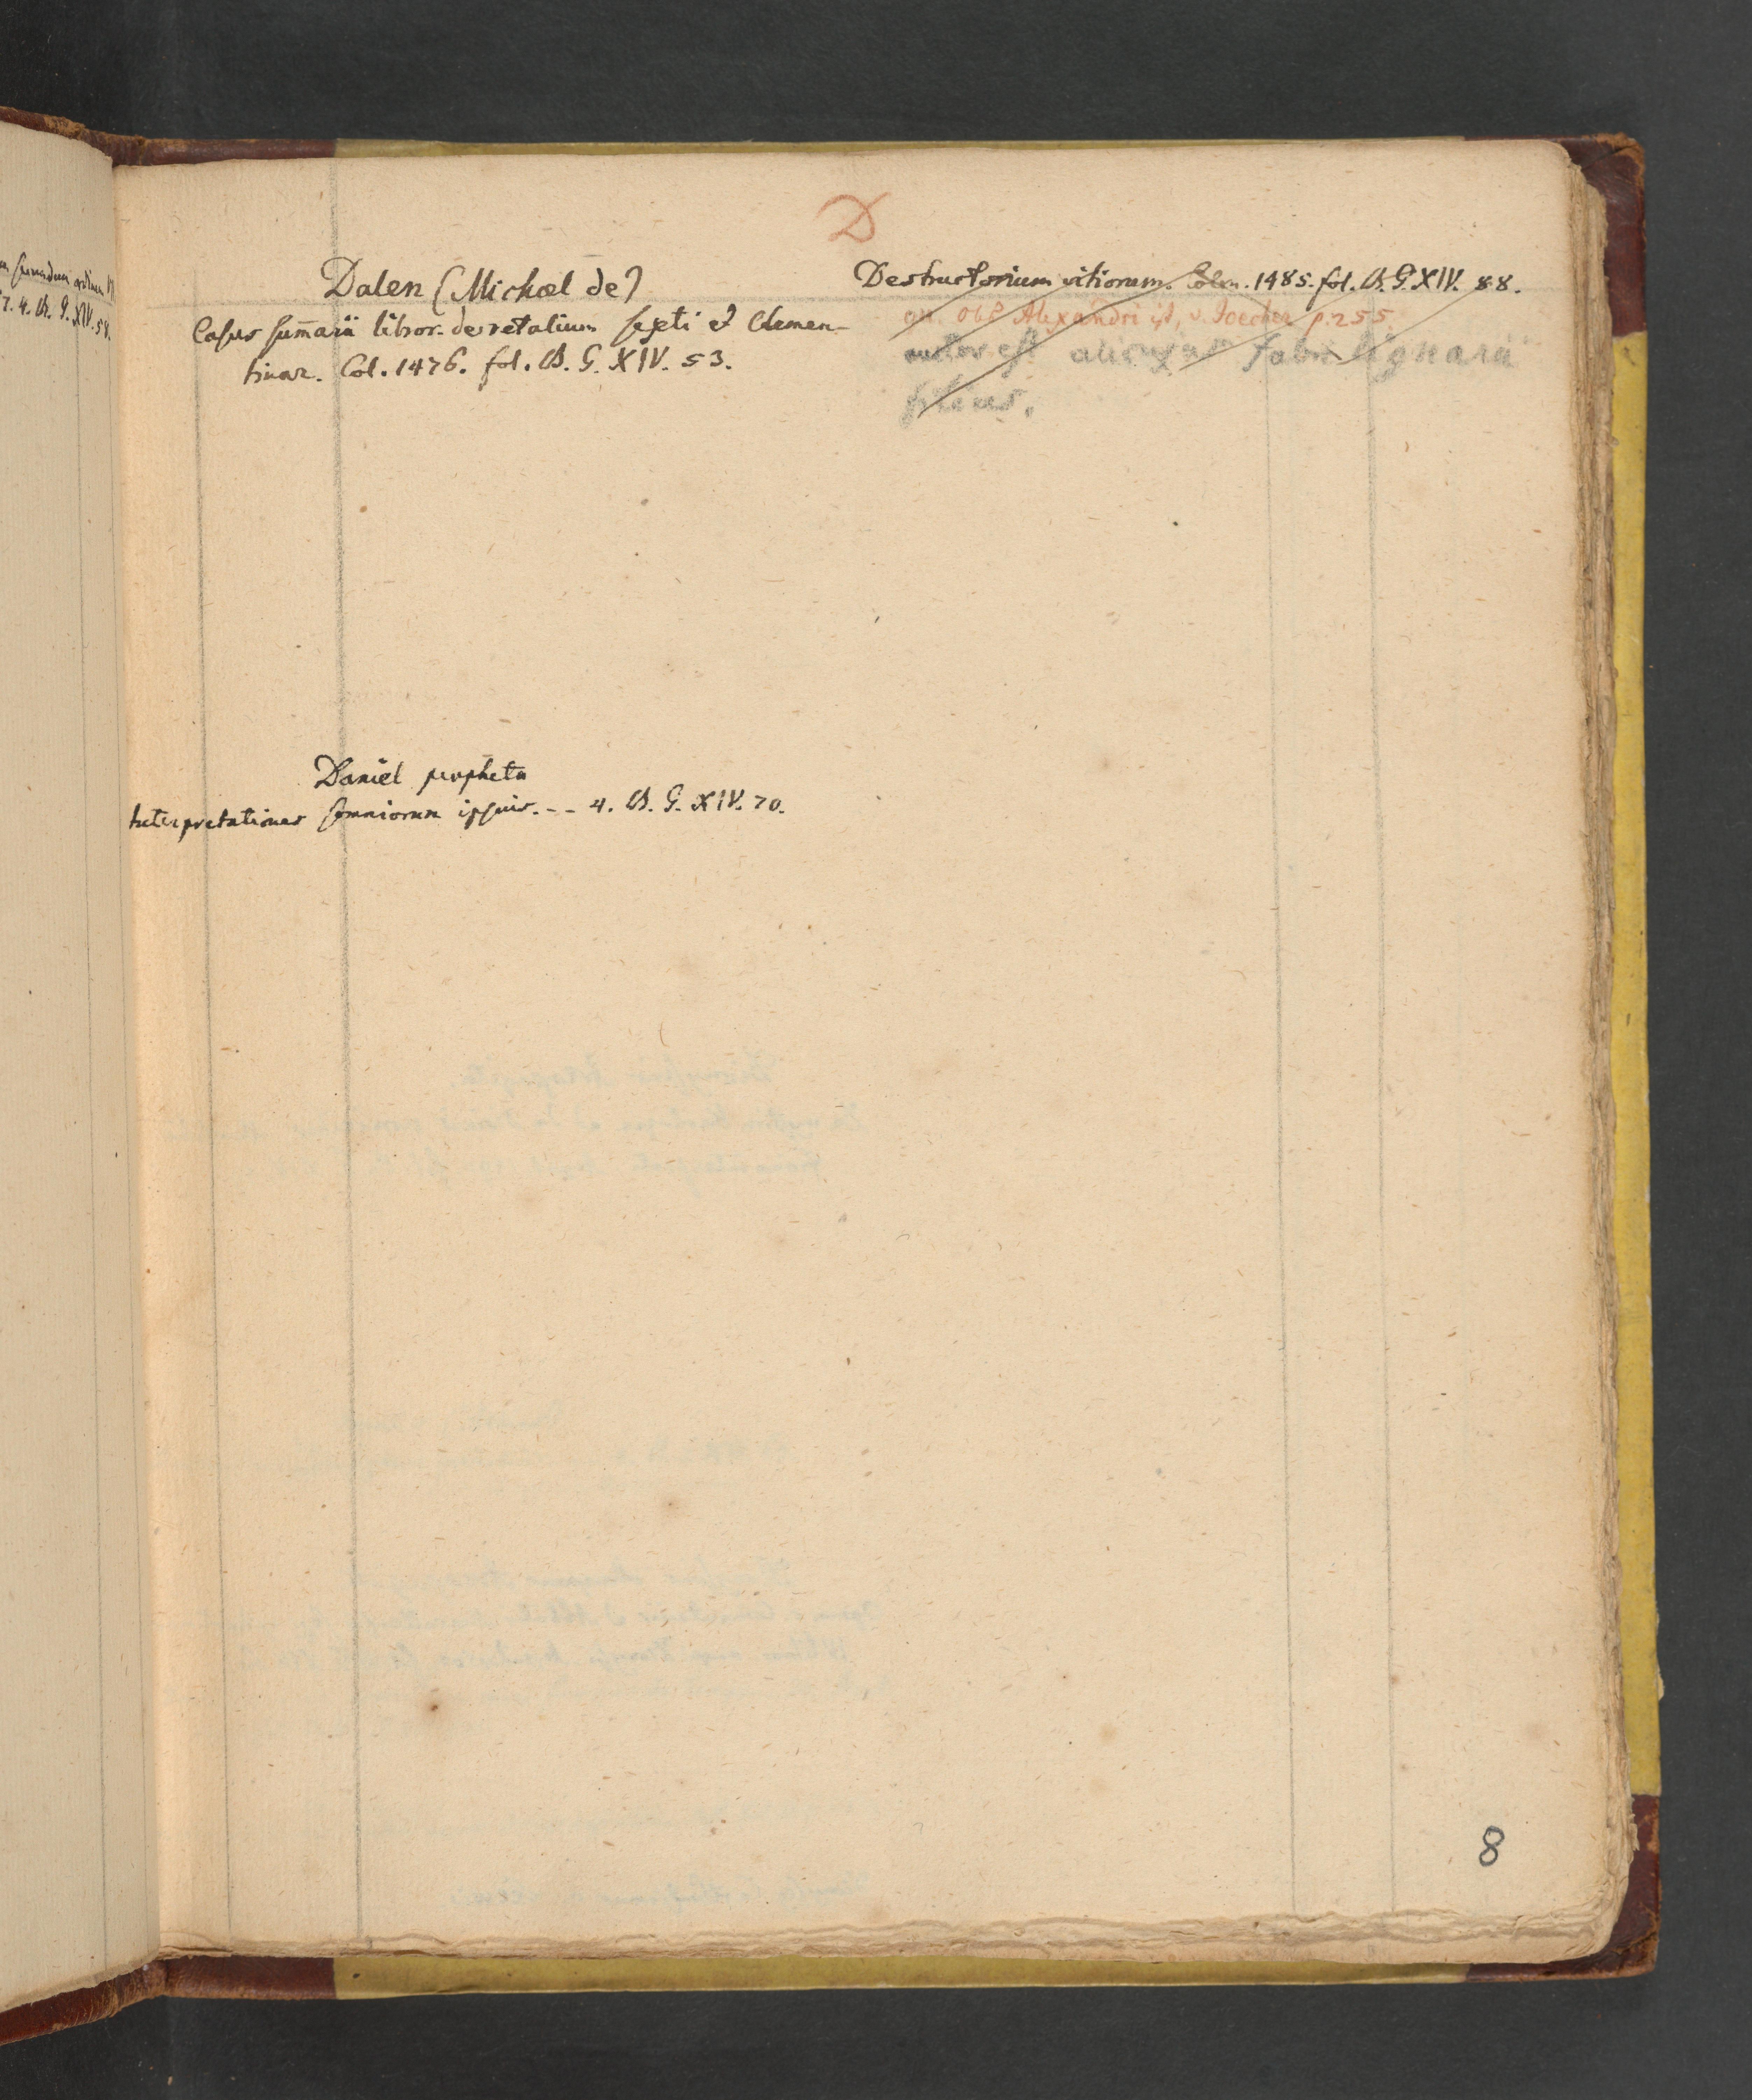 D
Dalen (Michael de)
Casus sum̄arii libror. decretalium sexti et Clemen-
tinar. Col. 1476. fol. B. G. XIV. 53.
Daniel propheta
Interpretationes somniorum ipsius. - - 4. B. G. XIV. 70.
Destructorium vitiorum. Colon. 1485. fol. B. G. XIV. 88.
an. ob Alexandri sit, v. Joecher p. 255.
auctor est alicujus fabri lignarii
filius.
8
4. B. G. XIV. 58.